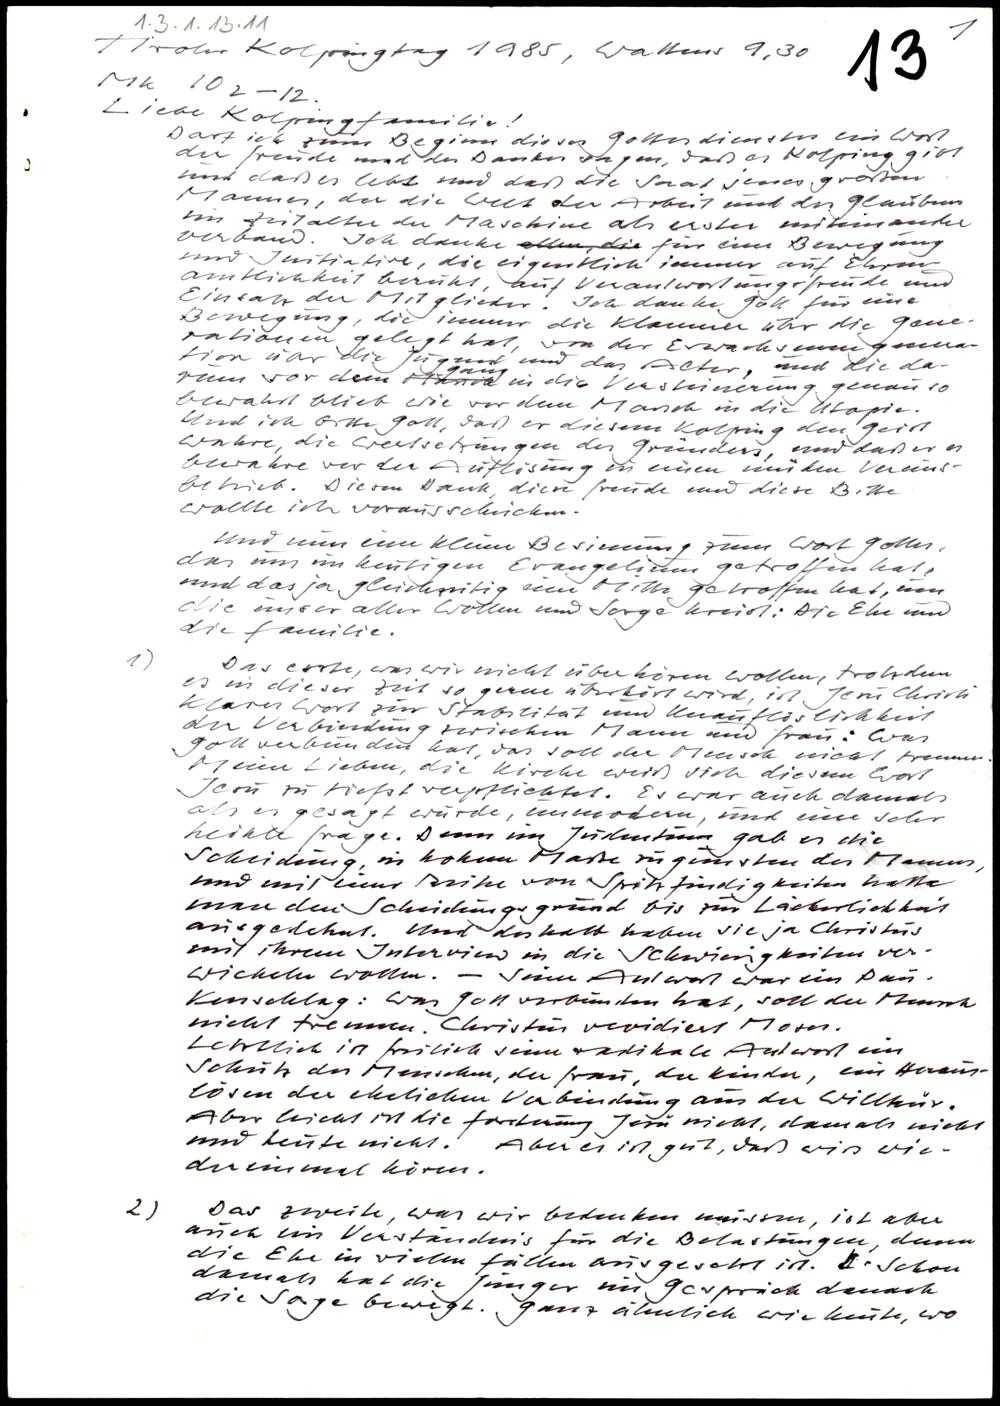 1.3.1.13.11
1
13
Tiroler Kolpingtag 1985, Wattens 9,30
Mk 10 2–12.
Liebe Kolpingfamilie!
Darf ich zum Beginn dieses Gottesdienstes ein Wort
der Freude und des Dankes sagen, daß es Kolping gibt
und daß es lebt und daß die Saat jenes großen
Mannes, der die Welt der Arbeit und des Glaubens
im Zeitalter der Maschine als erster miteinander
verband. Ich danke allen, die für eine Bewegung
und Initiative, die eigentlich immer auf Ehren-
amtlichkeit beruht, auf Verantwortungsfreude und
Einsatz der Mitglieder. Ich danke Gott für eine
Bewegung, die immer die Klammer über die Gene-
rationen gelegt hat, von der Erwachsenengenera-
tion über die Jugend und das Alter, und die da-
rum vor dem gang in die Versteinerung genau so
bewahrt blieb wie vor dem Marsch in die Utopie.
Und ich bitte Gott, daß er diesem Kolping den Geist
wahre, die Wertsetzungen des Gründers, und daß er es
bewahre vor der Auflösung in einen müden Vereins-
betrieb. Diesen Dank, diese Freude und diese Bitte
wollte ich vorausschicken.
Und nun eine kleine Besinnung zum Wort Gottes,
das uns im heutigen Evangelium getroffen hat,
und das ja gleichzeitig eine Mitte getroffen hat, um
die unser aller Wollen und Sorge kreist: Die Ehe und
die Familie.
1) Das erste, was wir nicht überhören wollen, trotzdem
es in dieser Zeit so gerne überhört wird, ist Jesu Christi
klares Wort zur Stabilität und Unauflöslichkeit
der Verbindung zwischen Mann und Frau: Was
Gott verbunden hat, das soll der Mensch nicht trennen.
Meine Lieben, die Kirche weiß sich diesem Wort
Jesu zu tiefst verpflichtet. Es war auch damals
als es gesagt wurde, unmodern, und eine sehr
heikle Frage. Denn im Judentum gab es die
Scheidung, in hohem Maße zugunsten des Mannes,
und mit einer Reihe von Spitzfindigkeiten hatte
man den Scheidungsgrund bis zur Lächerlichkeit
ausgedehnt. Und deshalb haben sie ja Christus
mit ihrem Interview in die Schwierigkeiten ver-
wickeln wollen. – Seine Antwort war ein Pau-
kenschlag: Was Gott verbunden hat, soll der Mensch
nicht trennen. Christus revidiert Moses.
Letztlich ist freilich seine radikale Antwort ein
Schutz des Menschen, der Frau, der Kinder, ein Heraus-
lösen der ehelichen Verbindung aus der Willkür.
Aber leicht ist die Forderung Jesu nicht, damals nicht
und heute nicht. Aber es ist gut, daß wirs wie-
dereinmal hören.
2) Das zweite, was wir bedenken müssen, ist aber
auch ein Verständnis für die Belastungen, denen
die Ehe in vielen Fällen ausgesetzt ist. Schon
damals hat die Jünger im Gespräch danach
die Sorge bewegt. Ganz ähnlich wie heute, wo